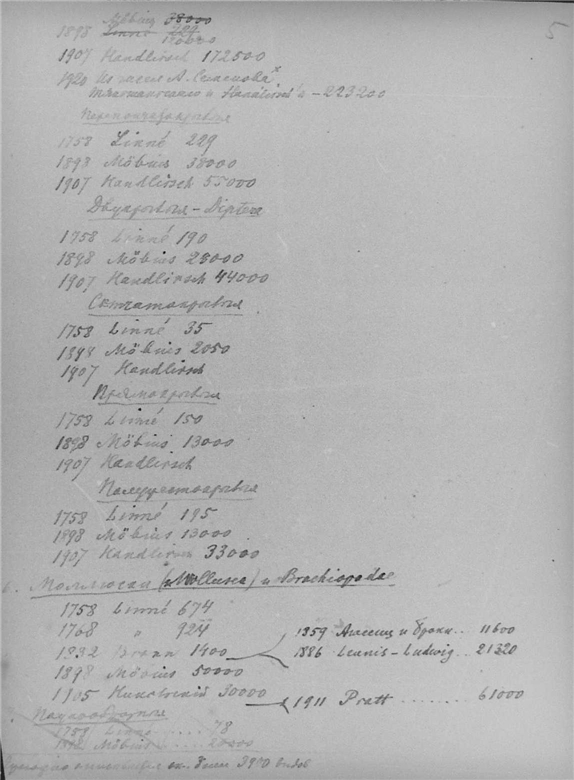 5
Möbius 38000
1898 Linné 229
1907 Handlirsch 172500
А. Семенова
и Handlirsch'а - 223200
Перепончатокрылыя
1758 Linné 229
1898 Möbius 38000
1907 Handlirsch 55000
Двукрылыя - Diptera
1758 Linné 190
1898 Möbius 28000
1907 Handlirsch 44000
Сѣтчатокрылыя
1758 Linné 35
1898 Möbius 2050
1907 Handlirsch
Прямокрылыя
1758 Linné 150
1898 Möbius 13000
1907 Handlirsch
Полужесткокрылыя
1758 Linné 195
1898 Möbius 13000
1907 Handlirsch 33000
6. Моллюски (Mollusca) и Brachiopodae
1758 Linné 674
1768 " 924
1832 Bronn 1400
1859 и Бронн .. 11600
1886 Leunis-Ludwig .. 21320
1898 Möbius 50000
1905 30000
1911 Pratt ....... 61000
1758 Linné ..... 78
Möbius